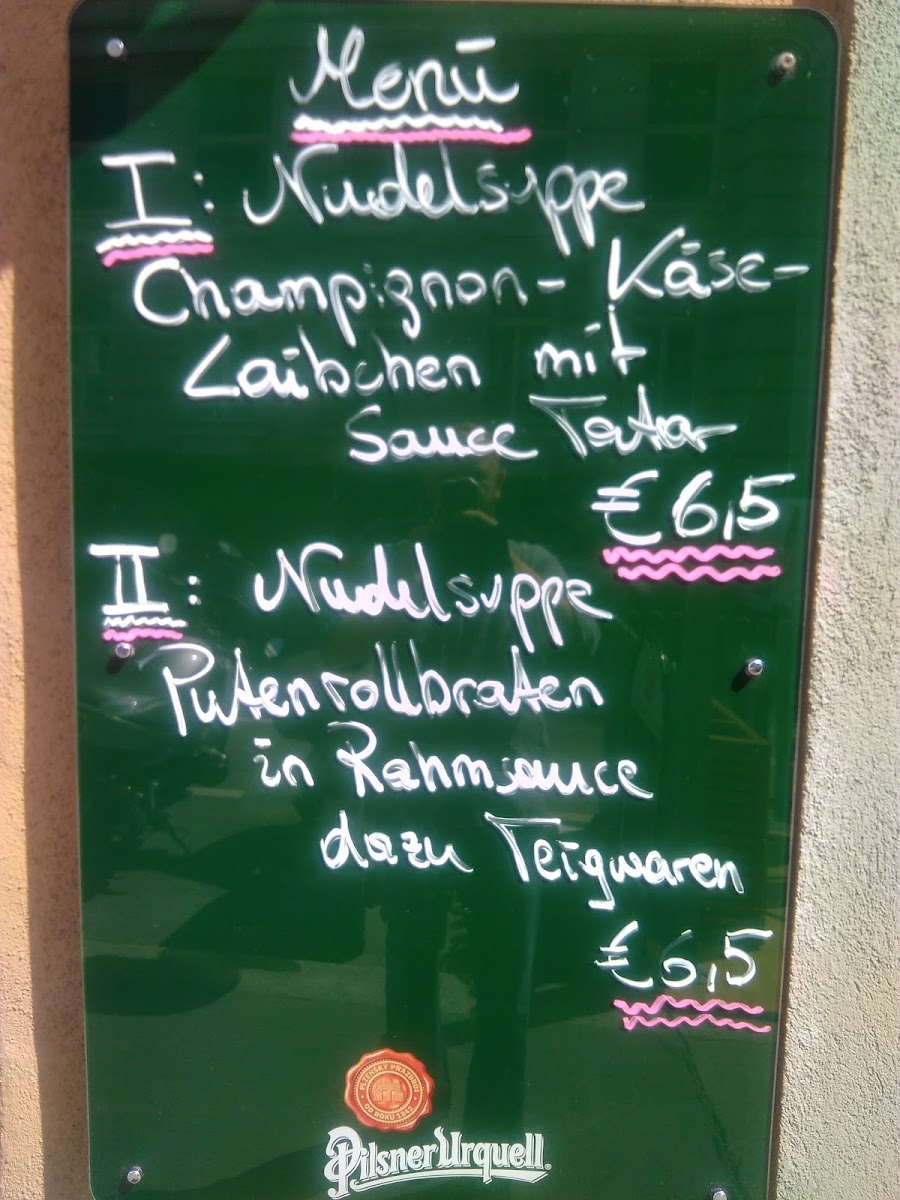 Menü
I: Nudelsuppe
Champignon- Käse-
Laibchen mit
Sauce Tatar
€6,5
II: Nudelsuppe
Putenrollbraten
in Rahmsauce
dazu Teigwaren
€6,5
PLZEŇSKÝ PRAZDROJ
OD ROKU 1842
Pilsner Urquell